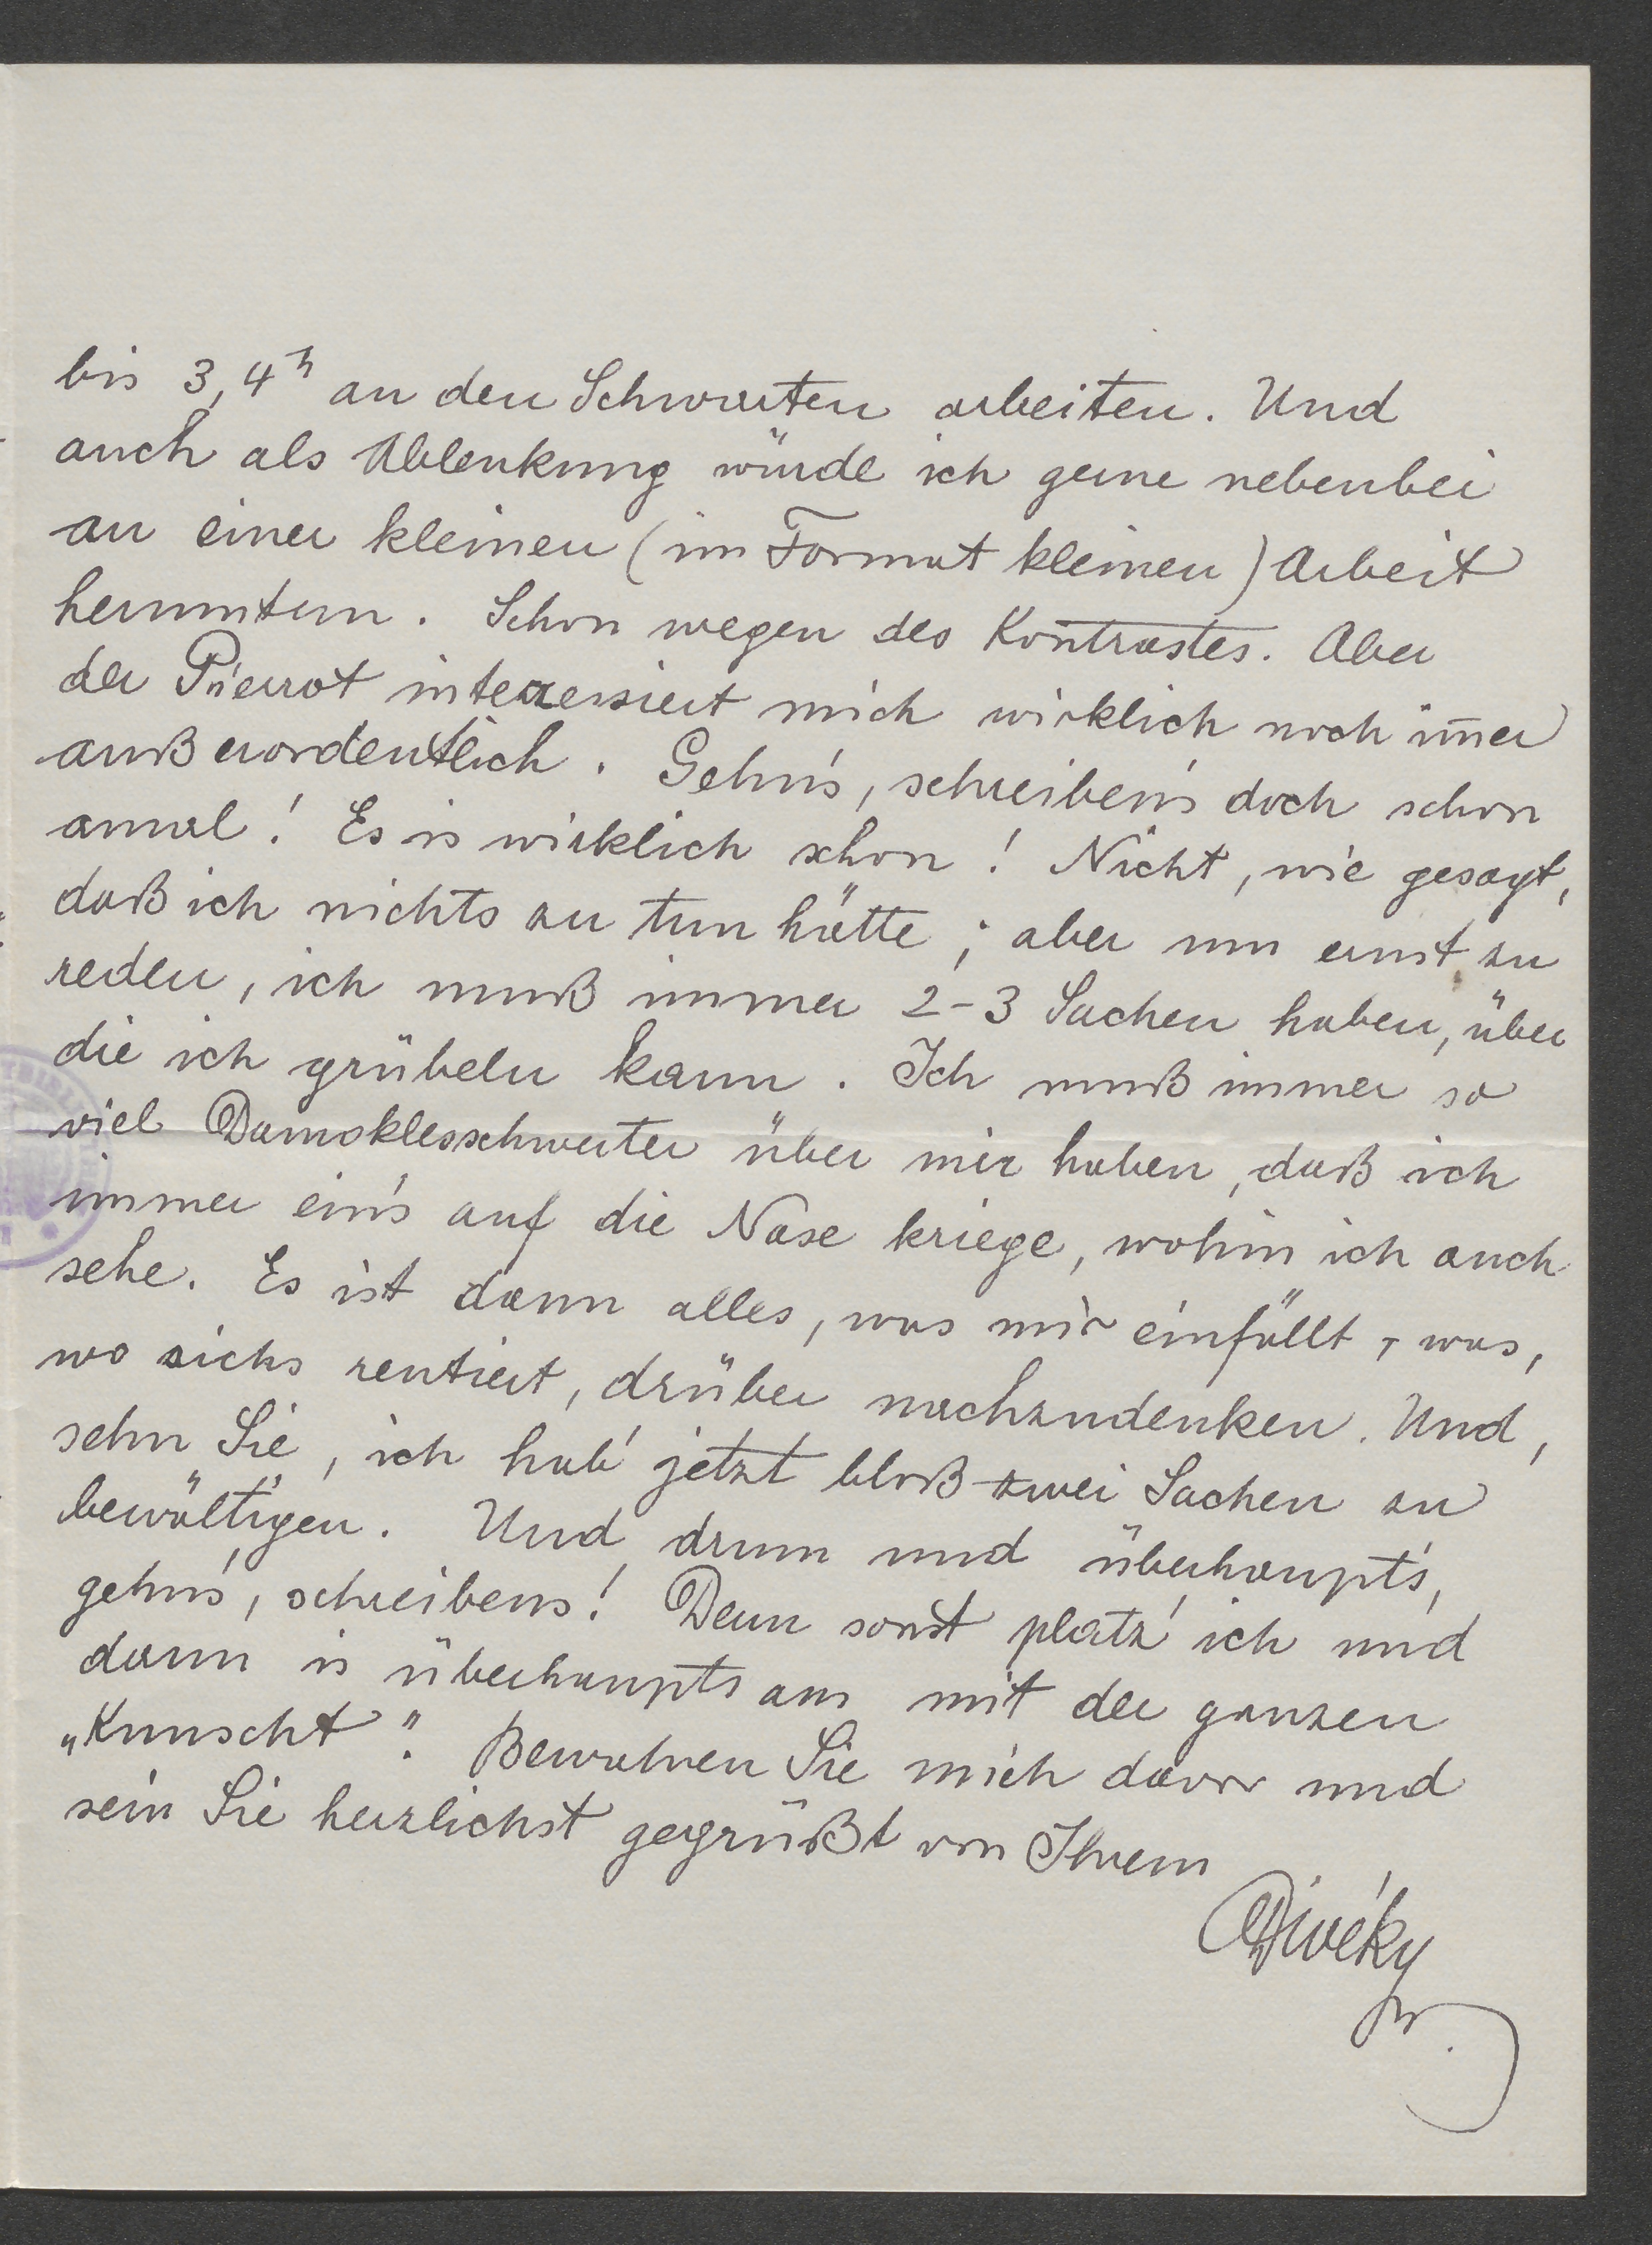 bis 3, 4ʰ an den Schwarten arbeiten. Und
auch als Ablenkung würde ich gerne nebenbei
an einer kleinen (im Format kleinen) Arbeit
herumtun. Schon wegen des Kontrastes. Aber
der Pierrot interessiert mich wirklich noch im̅er
außerordentlich. Gehn's, schreiben's doch schon
amal! Es is wirklich schon! Nicht, wie gesagt,
daß ich nichts zu tun hätte; aber um ernst zu
reden, ich muß immer 2-3 Sachen haben, über
die ich grübeln kann. Ich muß immer so
viel Damoklesschwerter über mir haben, daß ich
immer ein's auf die Nase kriege, wohin ich auch
sehe. Es ist dann alles, was mir einfällt, was,
wo sichs rentiert, drüber nachzudenken. Und,
sehn Sie, ich hab' jetzt bloß zwei Sachen zu
bewältigen. Und drum und überhaupt's,
gehn's, schreibens! Denn sonst platz' ich und
dann is überhaupts aus mit der ganzen
„Kunscht". Bewahren Sie mich davor und
sein Sie herzlichst gegrüßt von Ihrem
Divéky